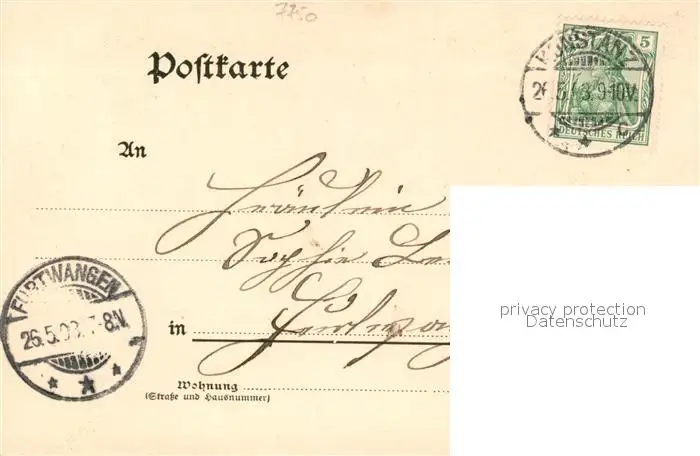 7750
Postkarte
KONSTANZ
5
26.5.03. 9-10V.
DEUTSCHES REICH
An
Fräulein
Sophie
FURTWANGEN
26.5.03. 7-8N.
in
privacy protection
Datenschutz
Wohnung
(Straße und Hausnummer)